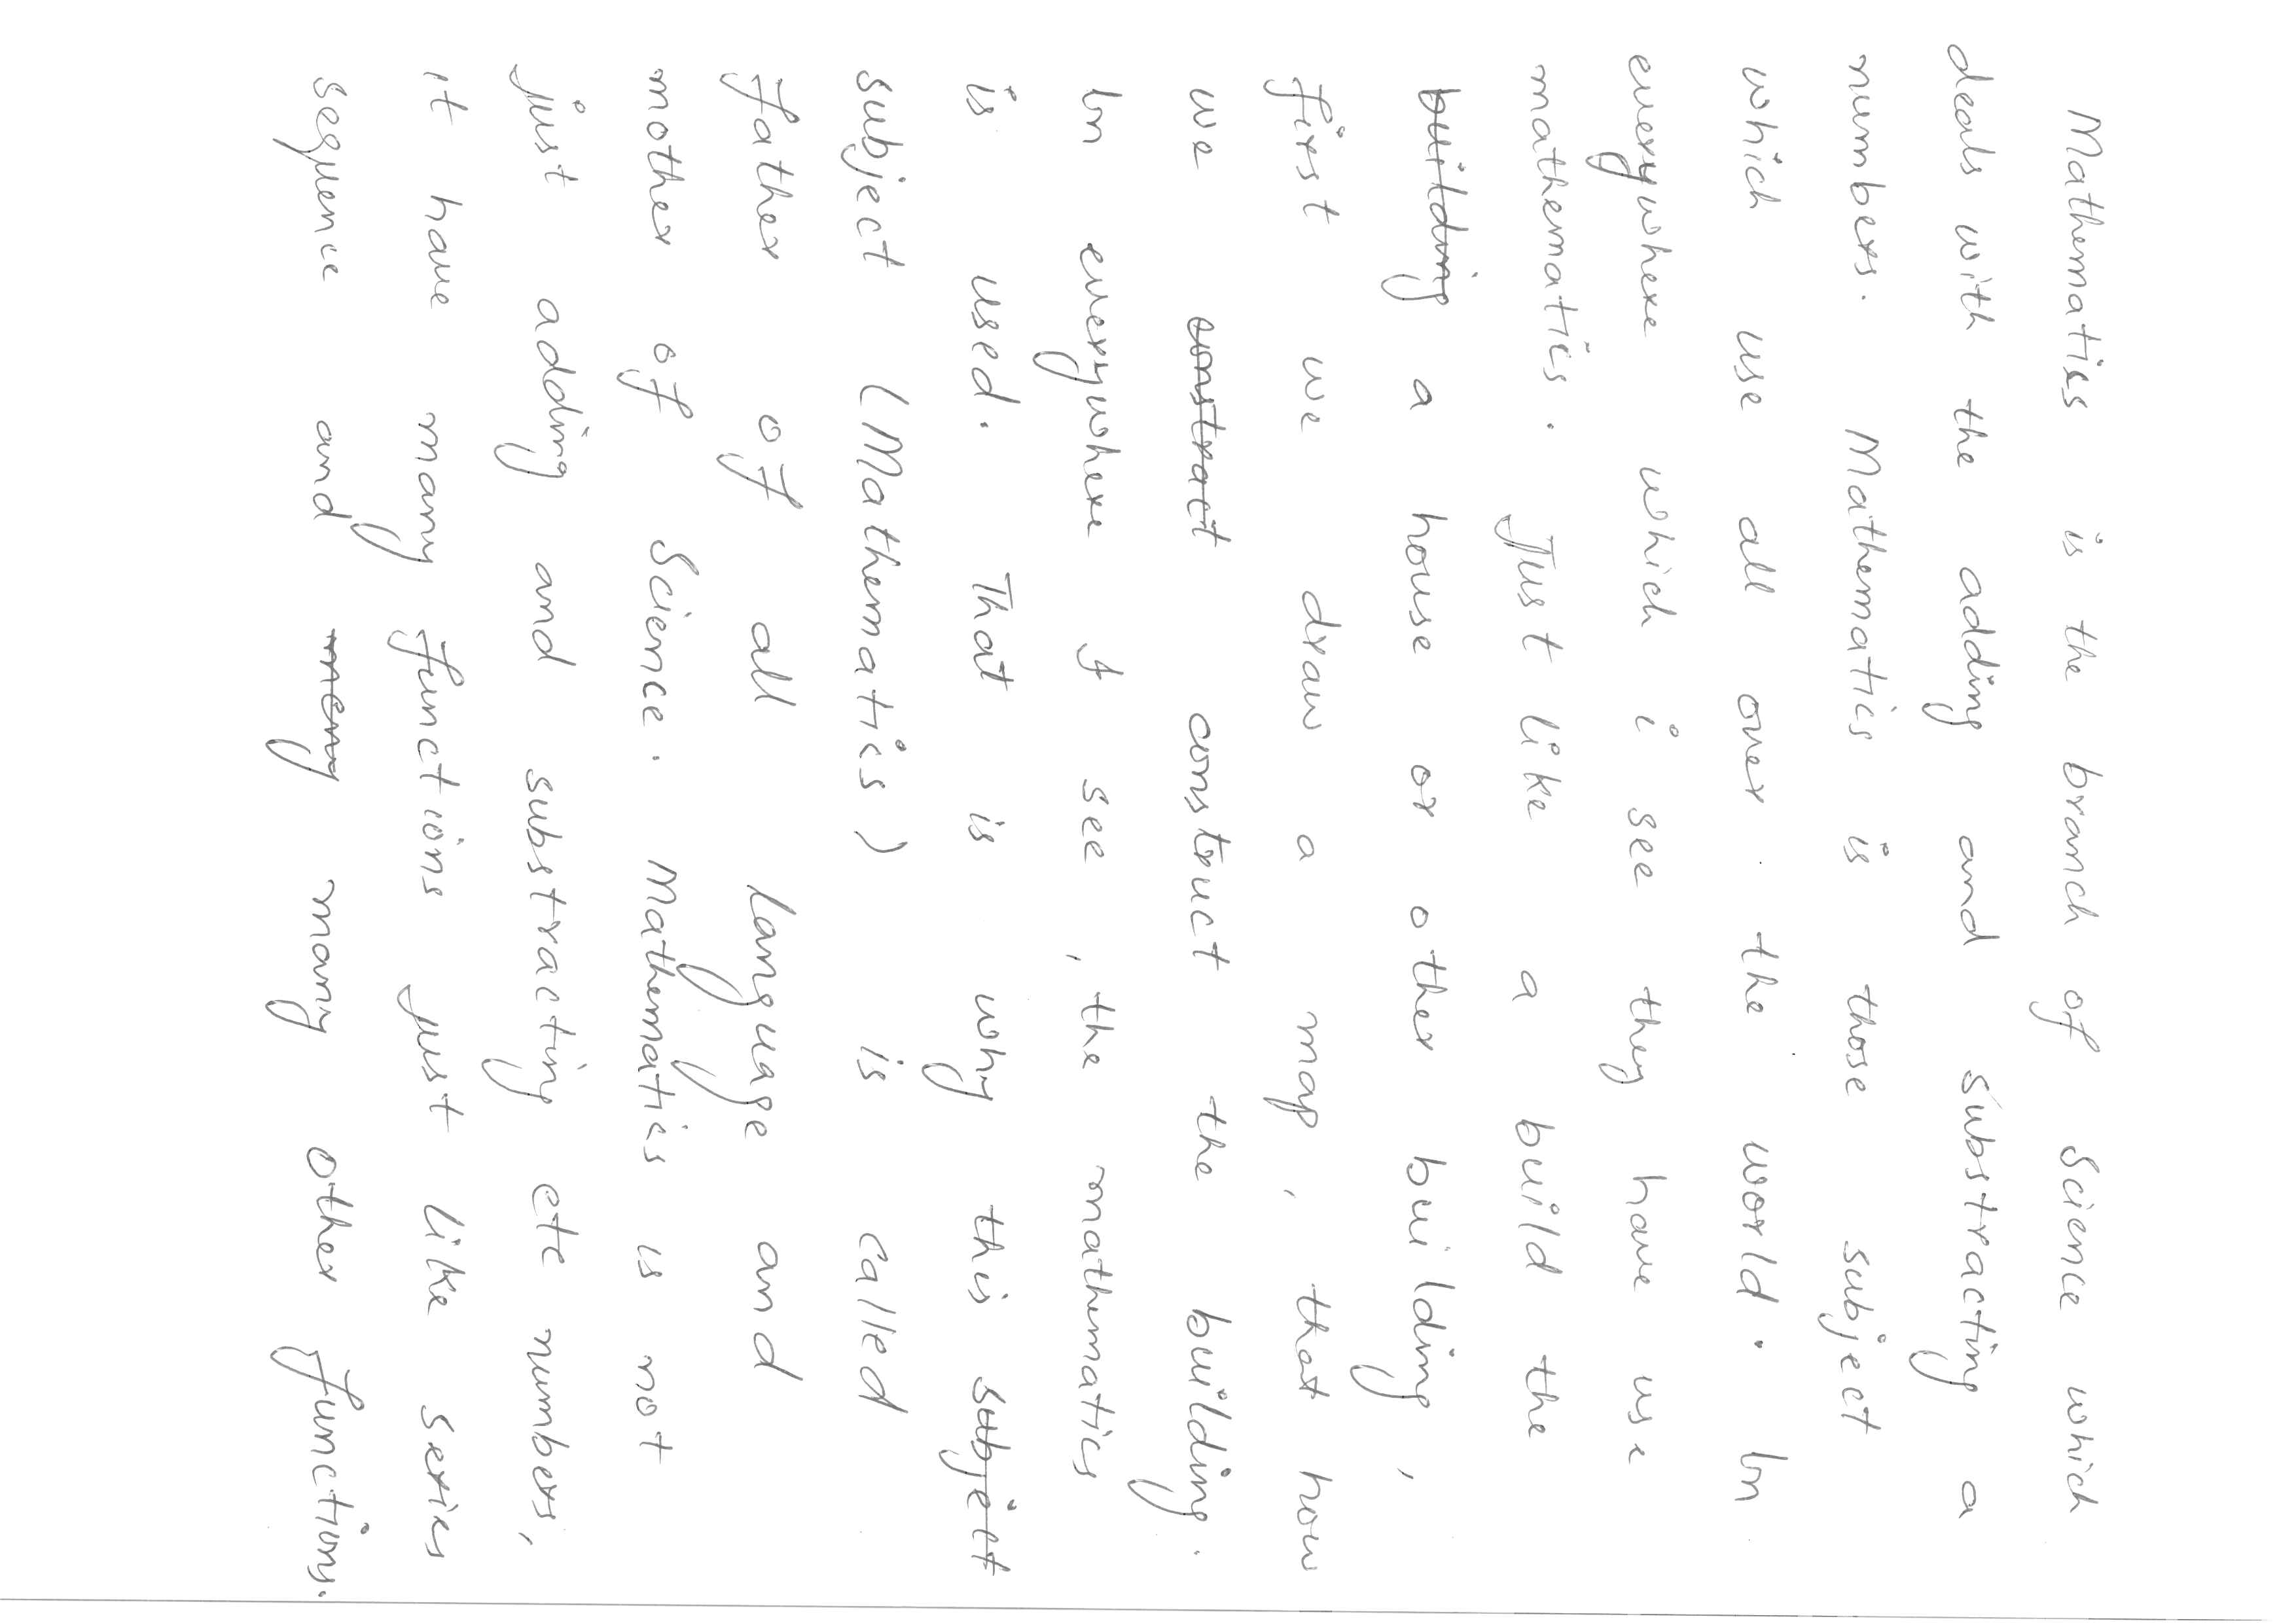 Mathematics is the branch of Science which
deals with the adding and substracting a
numbers. Mathematics is those subject
which use all over the world. In
everywhere which i see they have use
mathematics. Just like a build the
~~building~~ a house or other building,
first we draw a map, that how
we ~~constract~~ construct the building.
In everywhere I see, the mathematics
is used. That is why this ~~subject~~
subject (Mathematics) is called
father of all language and
mother of Science. Mathematics is not
just adding and substracting etc numbers,
it have many functions just like series
sequence and ~~meny~~ many other functions.